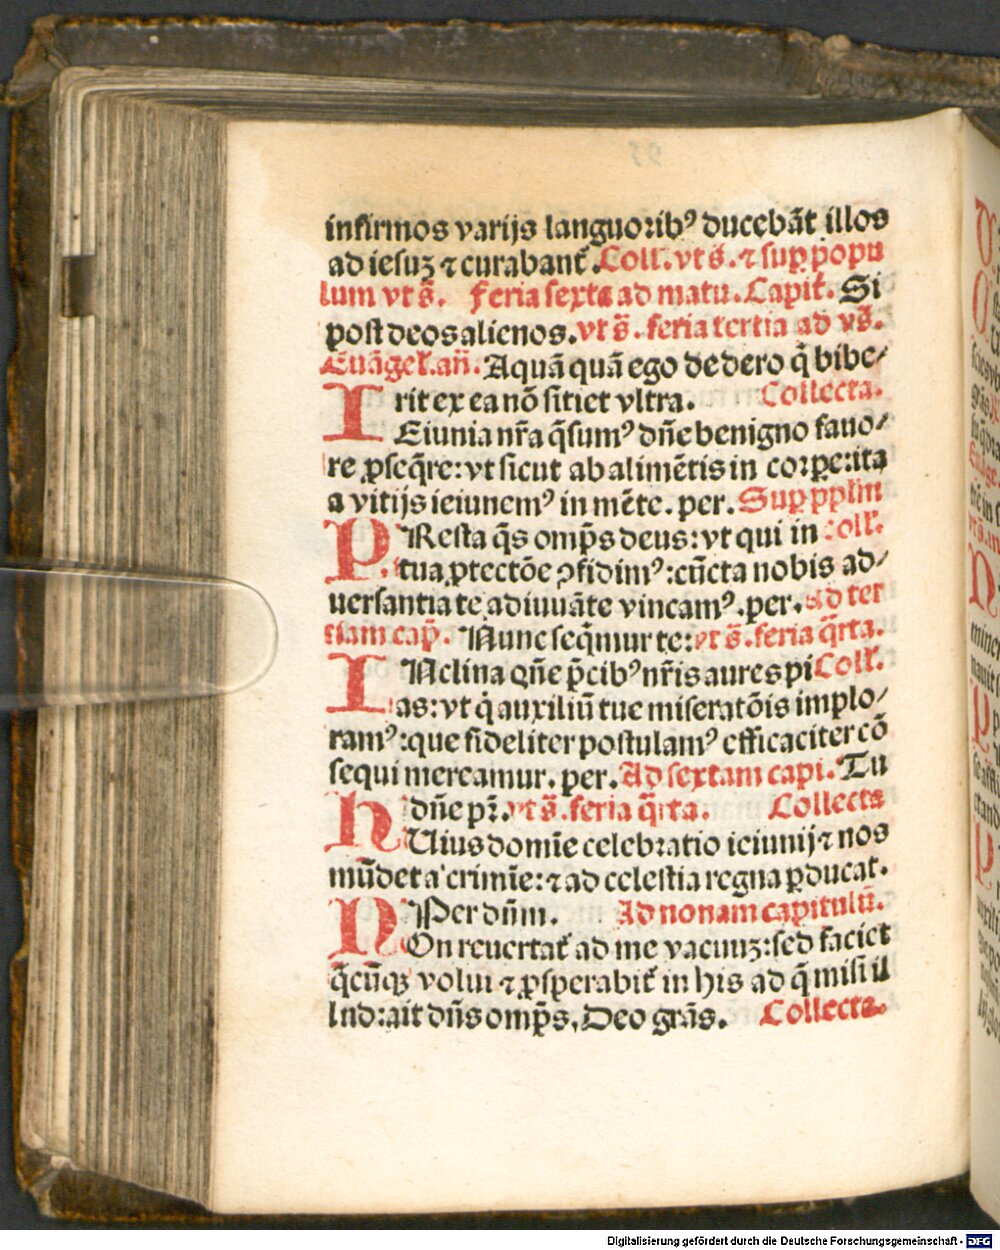 infirmos varijs languorib⁹ ducebāt illos
ad iesuʒ ⁊ curabant̄. Coll. vt s̄. ⁊ suꝑ popu
lum vt s̄. feria sexta ad matu. Capit̄. Si
post deos alienos. vt s̄. feria tertia ad vs̄.
Euāgel̄. an̄. Aquā quā ego dedero q̇ bibe⸗
rit ex ea nō sitiet vltra. Collecta.
IEiunia nr̄a q̄sum⁹ dn̄e benigno fauo⸗
re ꝓseq̄re: vt sicut ab alimētis in corꝑe: ita
a vitijs ieiunem⁹ in mēte. per. Suꝑ pplm̄
PResta q̄s omp̄s deus: vt qui in coll̄.
tua ꝓtectōe ꝯfidim⁹: cūcta nobis ad⸗
uersantia te adiuuāte vincam⁹. per. Ad ter
tiam cap̄. Nunc seq̄mur te: vt s̄. feria q̄rta.
INclina dn̄e p̄cib⁹ nr̄is aures pi Coll̄.
as: vt q̇ auxiliū tue miseratōis implo⸗
ram⁹: que fideliter postulam⁹ efficaciter cō
sequi mereamur. per. Ad sextam capi. Tu
dn̄e pr̄. vt s̄. feria q̄rta. Collecta
HUius domīe celebratio ieiunij ⁊ nos
mūdet a crimīe: ⁊ ad celestia regna ꝑducat.
Per dn̄m. Ad nonam capitulū.
NOn reuertat̄ ad me vacuuʒ: sed faciet
q̄cūqʒ volui ⁊ ꝓsperabit̄ in his ad q̄ misi il
lud: ait dn̄s omp̄s. Deo grās. Collecta.
Digitalisierung gefördert durch die Deutsche Forschungsgemeinschaft - DFG